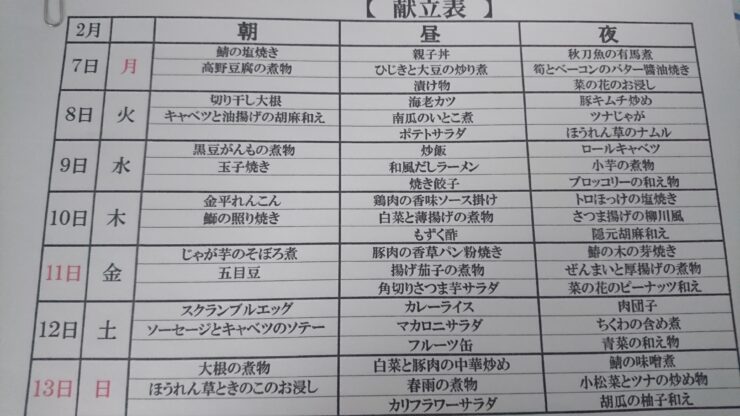 【 献立表 】
2月 朝 昼 夜
7日 月 鯖の塩焼き 親子丼 秋刀魚の有馬煮
高野豆腐の煮物 ひじきと大豆の炒り煮 筍とベーコンのバター醤油焼き
漬け物 菜の花のお浸し
8日 火 切り干し大根 海老カツ 豚キムチ炒め
キャベツと油揚げの胡麻和え 南瓜のいとこ煮 ツナじゃが
ポテトサラダ ほうれん草のナムル
9日 水 黒豆がんもの煮物 炒飯 ロールキャベツ
玉子焼き 和風だしラーメン 小芋の煮物
焼き餃子 ブロッコリーの和え物
10日 木 金平れんこん 鶏肉の香味ソース掛け トロほっけの塩焼き
鰤の照り焼き 白菜と薄揚げの煮物 さつま揚げの柳川風
もずく酢 隠元胡麻和え
11日 金 じゃが芋のそぼろ煮 豚肉の香草パン粉焼き 鰆の木の芽焼き
五目豆 揚げ茄子の煮物 ぜんまいと厚揚げの煮物
角切りさつま芋サラダ 菜の花のピーナッツ和え
12日 土 スクランブルエッグ カレーライス 肉団子
ソーセージとキャベツのソテー マカロニサラダ ちくわの含め煮
フルーツ缶 青菜の和え物
13日 日 大根の煮物 白菜と豚肉の中華炒め 鯖の味噌煮
ほうれん草ときのこのお浸し 春雨の煮物 小松菜とツナの炒め物
カリフラワーサラダ 胡瓜の柚子和え